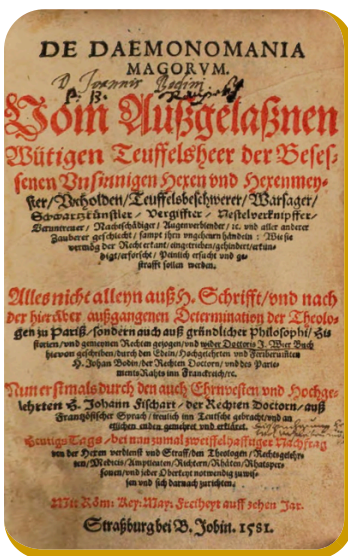 DE DAEMONOMANIA
MAGORVM.
D. Joannis Bodini
Vom Außgelaßnen
Wütigen Teuffelsheer der Beses-
senen Vnsinnigen Hexen vnd Hexenmey-
ster / Vnholden / Teuffelsbeschwerer / Warsager /
Schwartzkünstler / Vergiffter / Nestelverknipffer /
Veruntreuer / Nachtschädiger / Augenverblender / ꝛc. vnd aller anderer
Zauberer geschlecht / sampt jhren vngeheurn händeln: Wie sie
vermög der Recht erkant / eingetrieben / gehindert / erkün-
digt / erforscht / Peinlich ersucht vnd ge-
strafft sollen werden.
Alles nicht alleyn auß H. Schrifft / vnd nach
der hierüber außgangenen Determination der Theolo-
gen zu Pariß / sondern auch auß gründlicher Philosophi / His
storien / vnd gemeynen Rechten gezogen / vnd wider Doctoris J. Wier Buch
hievon geschriben / durch den Edeln / Hochgelehrten vnd Fernberümten
H. Johan Bodin / der Rechten Doctorn / vnd des Parle-
ments Rhats inn Franckreich / ꝛc.
Nun erstmals durch den auch Ehrnvesten vnd Hochge-
lehrten H. Johann Fischart / der Rechten Doctorn / auß
Frantzösischer Sprach / treulich inn Teutsche gebracht / vnd an
etlichen enden gemehret vnd erkläret.
Heutigs Tags / bei nun zumal zweiffelhafftiger Nachfrag
von der Hexen verdienst vnd Straff / den Theologen / Rechtsgelehr-
ten / Medicis / Amptleuten / Richtern / Rhäten / Rhatsper-
sonen / vnd jeder Oberkeyt notwendig zu wis-
sen vnd sich darnach zurichten.
Mit Röm: Key: May: Freiheyt auff zehen Jar.
Straßburg bei B. Jobin. 1581.